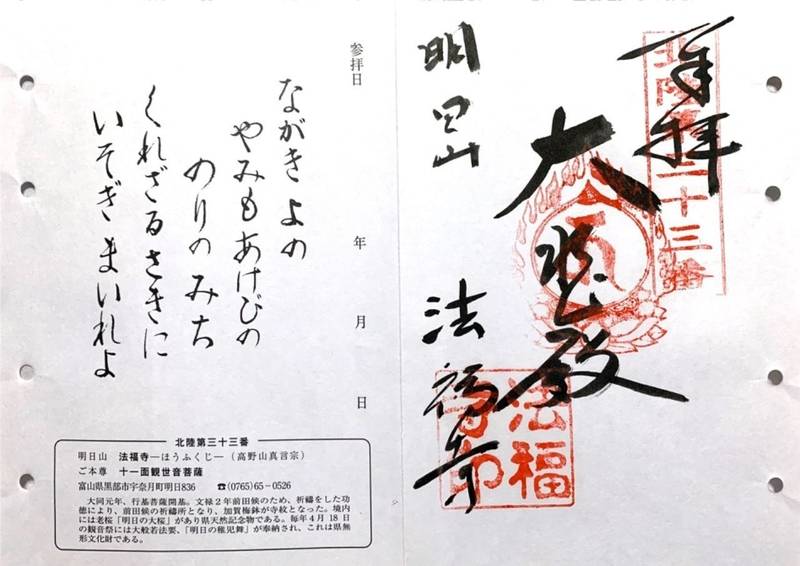 奉拝
北陸第三十三番
大悲殿
明日山
法福寺
法福寺印
参拝日
年
月
日
ながきよの
やみもあけびの
のりのみち
くれざるさきに
いそぎまいれよ
北陸第三十三番
明日山 法福寺―ほうふくじ―(高野山真言宗)
ご本尊 十一面観世音菩薩
富山県黒部市宇奈月町明日836 ☎(0765)65-0526
大同元年、行基菩薩開基。文禄2年前田候のため、祈禱をした功
徳により、前田候の祈禱所となり、加賀梅鉢が寺紋となった。境内
には老桜「明日の大桜」があり県天然記念物である。毎年4月18日
の観音祭には大般若法要、「明日の稚児舞」が奉納され、これは県無
形文化財である。